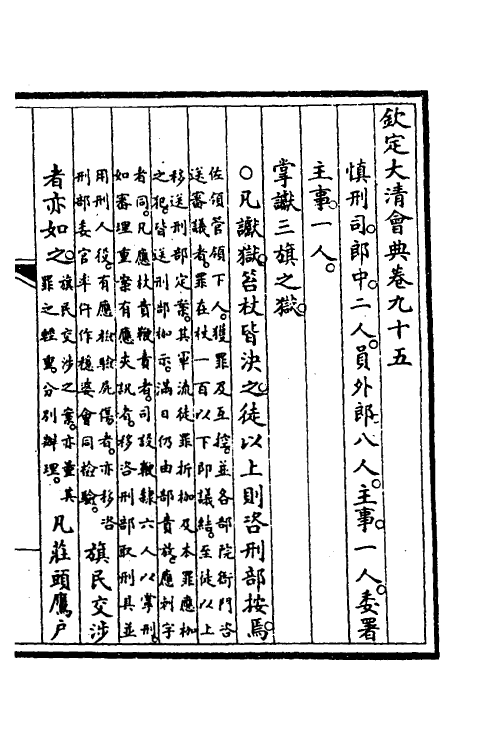 欽定大清會典卷九十五
慎刑司。郎中。二人。員外郎。八人。主事。一人。委署
主事。一人。
掌讞三旗之獄。
○凡讞獄。笞杖皆決之。徒以上則咨刑部按焉。
佐領管領下人。獲罪及互控。並各部院衙門咨
送審議者。罪在杖一百以下即議結。至徒以上
移送刑部定案。其軍流徒罪折枷及本罪應枷
之犯。皆送刑部枷示。滿日仍由部責放。應刺字
者同。凡應杖責鞭責者。司設鞭隸六人以掌刑。
如審理重案有應夾訊者。移咨刑部取刑具並
用刑人役。有應檢驗屍傷者。亦移咨
刑部委官率仵作穩婆會同檢驗。
旗民交涉
者亦如之。
旗民交涉之案。亦量其
罪之輕重分別辦理。
凡莊頭鷹戶